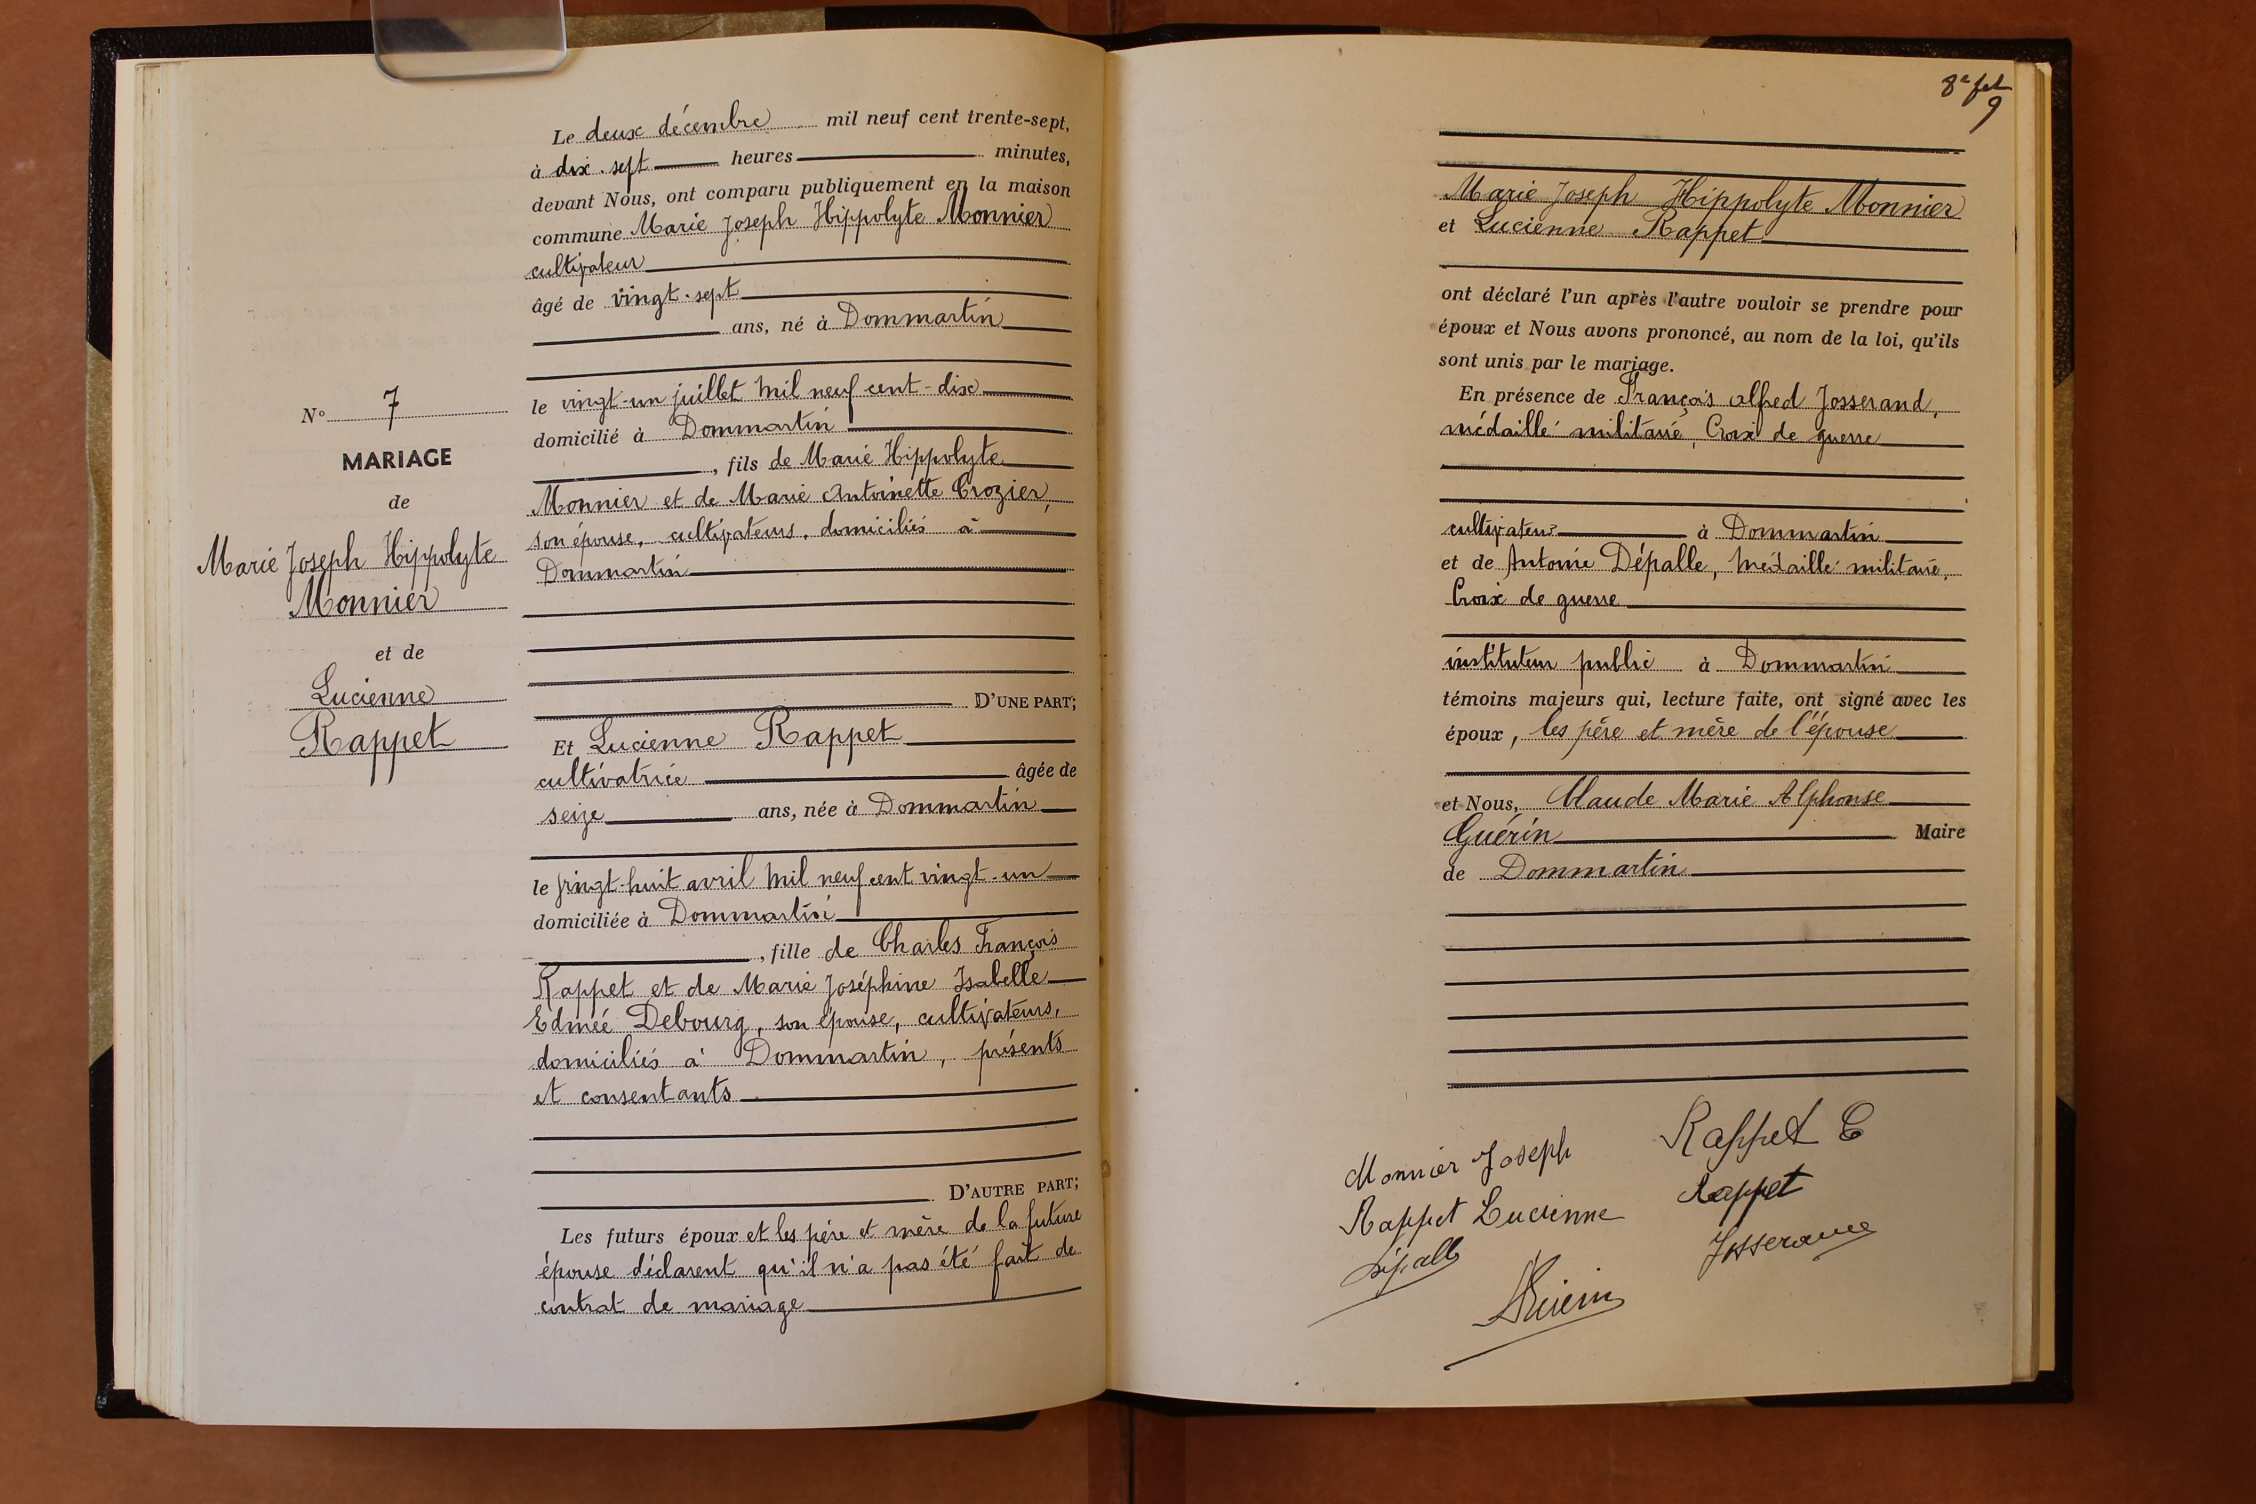 N° 7
MARIAGE
de
Marie Joseph Hippolyte
Monnier
et de
Lucienne
Rappet
Le deux décembre mil neuf cent trente-sept,
à dix-sept heures minutes,
devant Nous, ont comparu publiquement en la maison
commune Marie Joseph Hippolyte Monnier
cultivateur
âgé de vingt-sept
ans, né à Dommartin
le vingt-un juillet mil neuf cent-dix
domicilié à Dommartin
, fils de Marie Hippolyte
Monnier et de Marie Antoinette Crozier,
son épouse, cultivateurs, domiciliés à
Dommartin
D'UNE PART;
Et Lucienne Rappet
cultivatrice âgée de
seize ans, née à Dommartin
le vingt-huit avril mil neuf cent vingt-un
domiciliée à Dommartin
, fille de Charles François
Rappet et de Marie Joséphine Isabelle
Edmée Debourg, son épouse, cultivateurs,
domiciliés à Dommartin, présents
et consentants
D'AUTRE PART;
Les futurs époux et les père et mère de la future
épouse déclarent qu'il n'a pas été fait de
contrat de mariage
9
Marie Joseph Hippolyte Monnier
et Lucienne Rappet
ont déclaré l'un après l'autre vouloir se prendre pour
époux et Nous avons prononcé, au nom de la loi, qu'ils
sont unis par le mariage.
En présence de François Alfred Josserand,
médaillé militaire, Croix de guerre
cultivateur à Dommartin
et de Antoine Dépalle, médaillé militaire,
Croix de guerre
instituteur public à Dommartin
témoins majeurs qui, lecture faite, ont signé avec les
époux, les père et mère de l'épouse
et Nous, Claude Marie Alphonse
Guérin Maire
de Dommartin
Monnier Joseph
Rappet E
Rappet Lucienne
Rappet
Dépalle
Josserand
Guérin